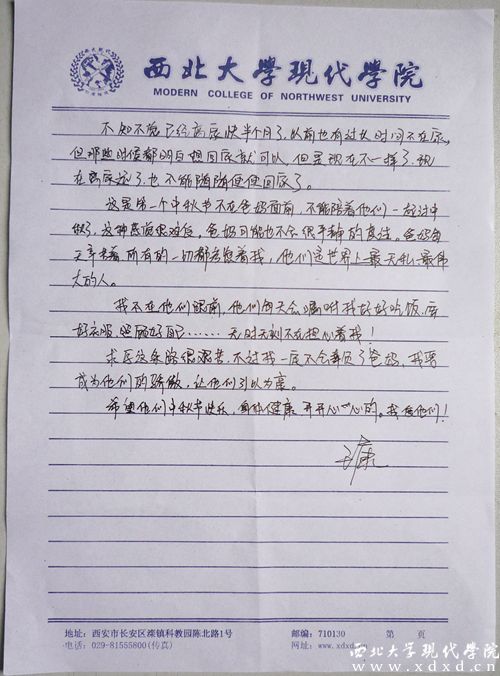 西北大学现代学院
西北大學现代學院
MODERN COLLEGE OF NORTHWEST UNIVERSITY
不知不觉已经离家快半个月了,以前也有过长时间不在家,
但那些时候都明白想回家就可以,但是现在不一样了,现
在离家远了也不能随随便便回家了。
这是第一个中秋节不在爸妈面前,不能陪着他们一起过中
秋了,这种感觉很难受,爸妈可能也不会很平静的度过。爸妈每
天辛苦着所有的一切都为想着我,他们是世界上最无私最伟
大的人。
我不在他们跟前,他们每天会嘱咐我好好吃饭,穿
好衣服,照顾好自己……无时无刻不在担心着我!
求学这条路很艰苦,不过我一定不会辜负了爸妈,我要
成为他们的骄傲,让他们引以为豪。
希望他们中秋节快乐,身体健康,开开心心的。我爱他们!
地址:西安市长安区滦镇科教园陈北路1号
邮编:710130 第 页
电话:029-81555800(传真)
网址:www.xdxd.
西北大学现代学院
www.xdxd.cn